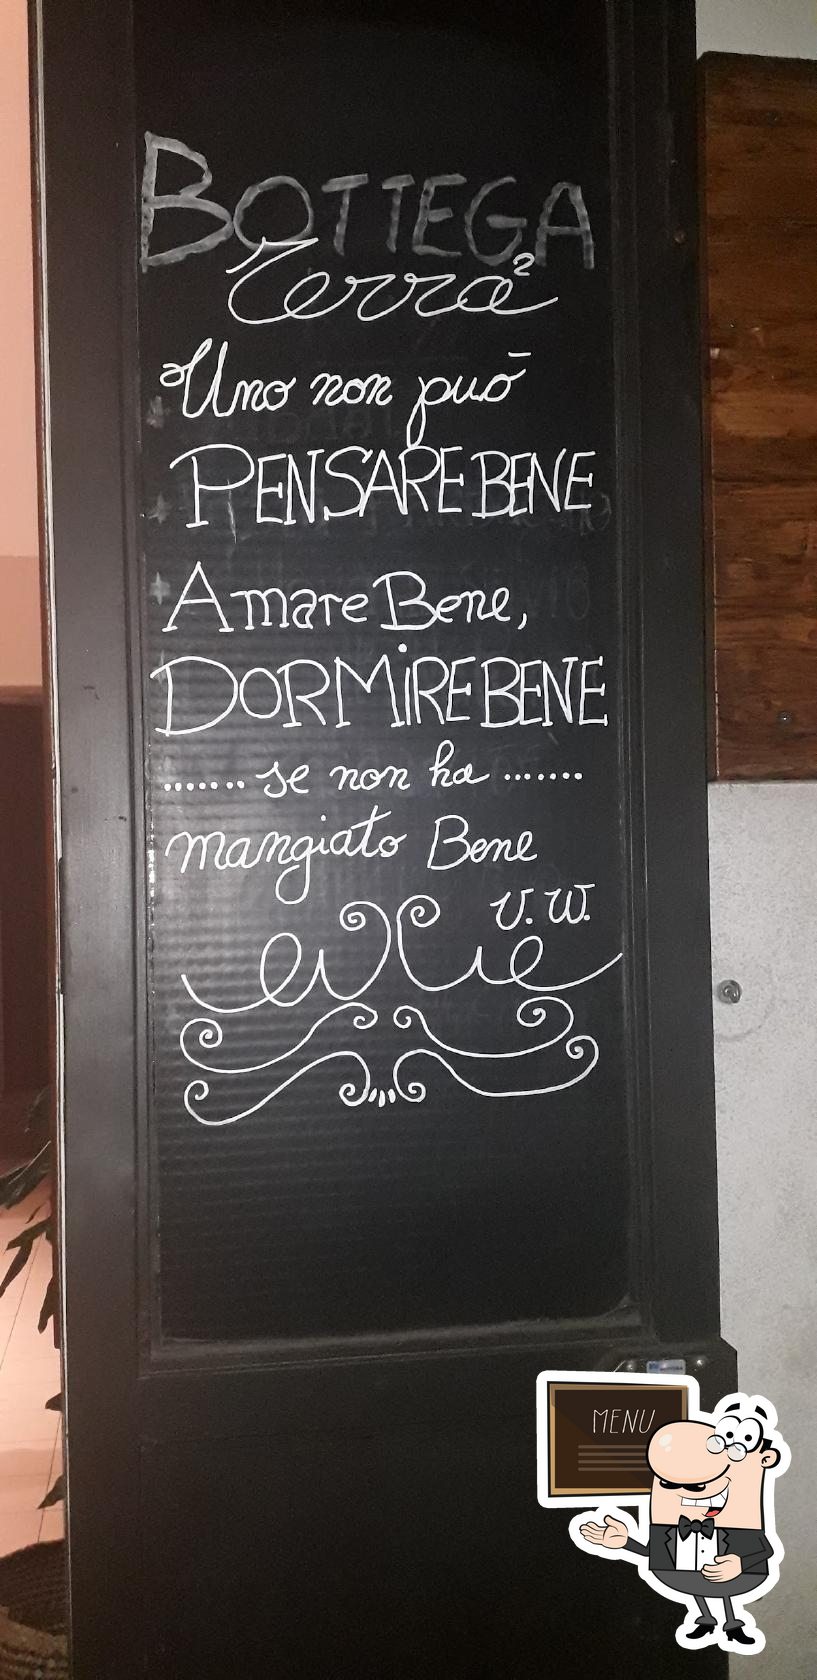 BOTTEGA
Terra²
Uno non può
PENSARE BENE
Amare Bene,
DORMiRE BENE
....... se non ha .......
mangiato Bene
V. W.
MENU